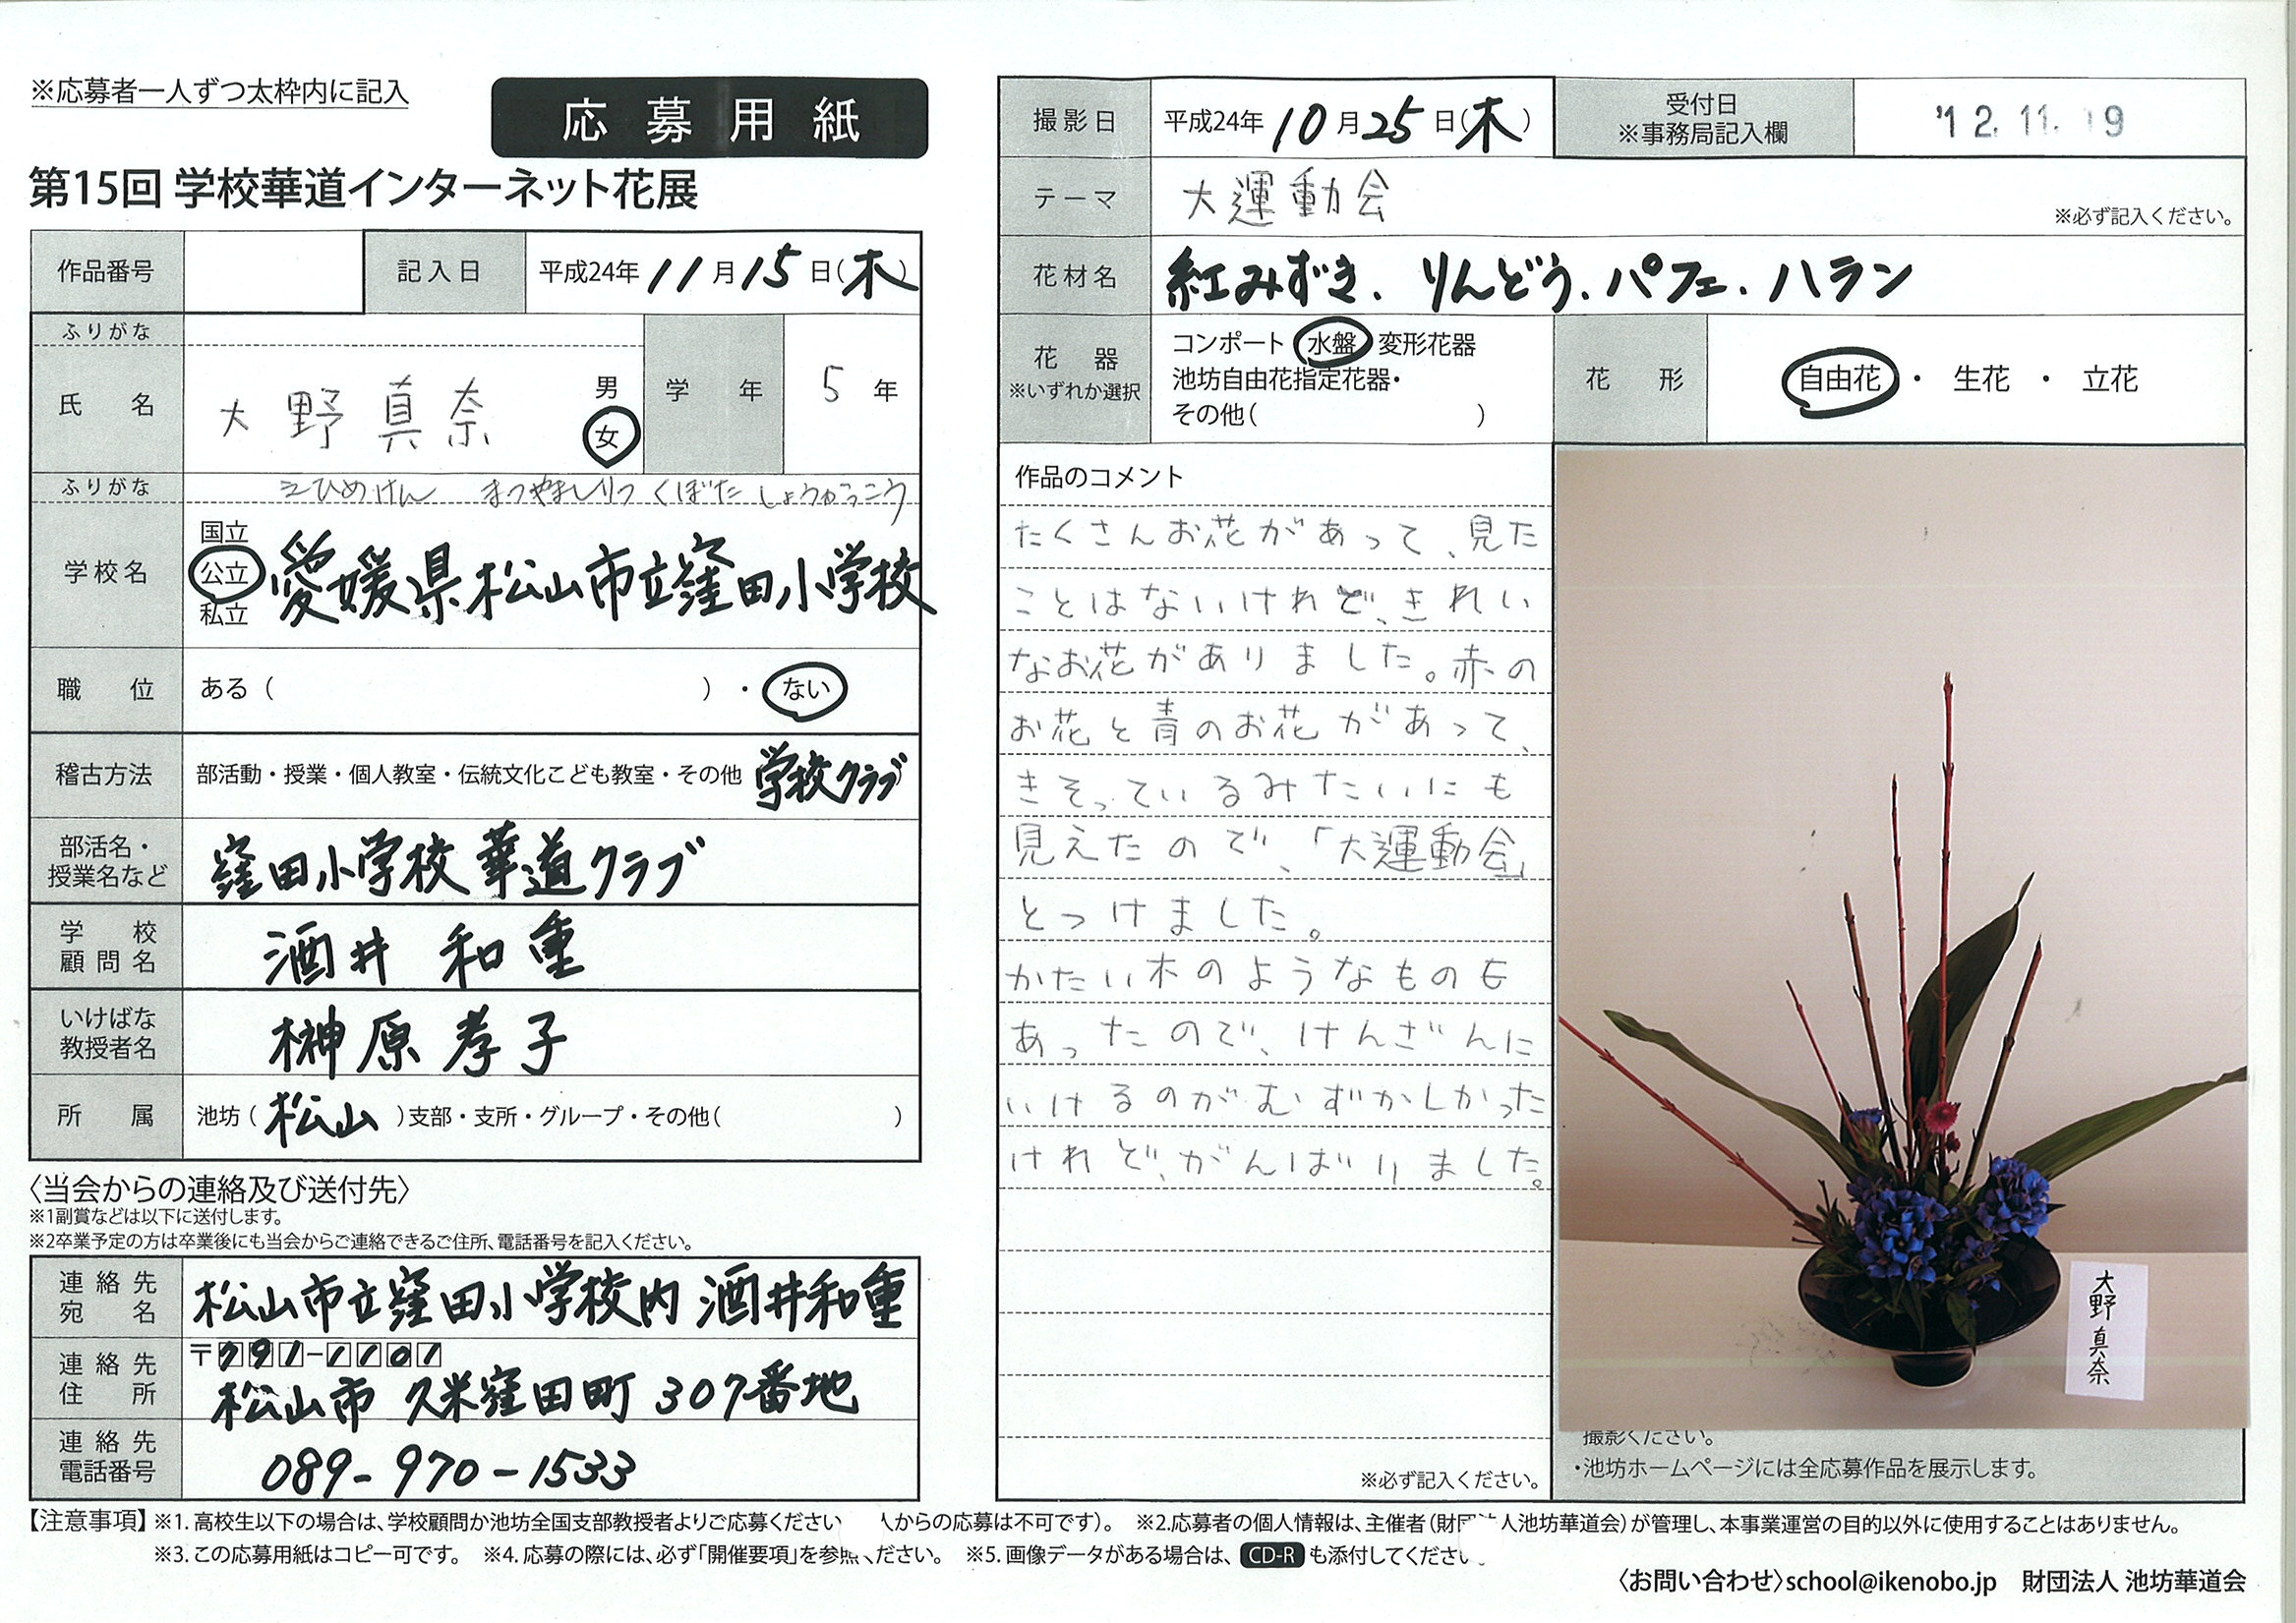 ※応募者一人ずつ太枠内に記入
応募用紙
第15回 学校華道インターネット花展
作品番号
記入日 平成24年11月15日(木)
ふりがな
氏名 大野真奈 男 女
学年 5年
ふりがな えひめけん まつやましりつ くぼた しょうがっこう
学校名 国立 公立 私立 愛媛県松山市立窪田小学校
職位 ある( )・ない
稽古方法 部活動・授業・個人教室・伝統文化こども教室・その他 学校クラブ
部活名・授業名など 窪田小学校華道クラブ
学校顧問名 酒井 和重
いけばな教授者名 榊原孝子
所属 池坊(松山)支部・支所・グループ・その他( )
〈当会からの連絡及び送付先〉
※1副賞などは以下に送付します。
※2卒業予定の方は卒業後にも当会からご連絡できるご住所、電話番号を記入ください。
連絡先宛名 松山市立窪田小学校内 酒井和重
連絡先住所 〒791-1101
松山市 久米窪田町 307番地
連絡先電話番号 089-970-1533
撮影日 平成24年10月25日(木)
受付日 ※事務局記入欄 '12.11.19
テーマ 大運動会 ※必ず記入ください。
花材名 紅みずき. りんどう. パフェ. ハラン
花器 ※いずれか選択
コンポート 水盤 変形花器
池坊自由花指定花器・
その他( )
花形 自由花 ・ 生花 ・ 立花
作品のコメント
たくさんお花があって、見た
ことはないけれど、きれい
なお花がありました。赤の
お花と青のお花があって、
きそっているみたいにも
見えたので、「大運動会」
とつけました。
かたい木のようなものも
あったので、けんざんに
いけるのがむずかしかった
けれど、がんばりました。
※必ず記入ください。
大野真奈
撮影ください。
・池坊ホームページには全応募作品を展示します。
【注意事項】※1. 高校生以下の場合は、学校顧問か池坊全国支部教授者よりご応募ください 人からの応募は不可です)。 ※2.応募者の個人情報は、主催者(財団 人池坊華道会)が管理し、本事業運営の目的以外に使用することはありません。
※3. この応募用紙はコピー可です。 ※4. 応募の際には、必ず「開催要項」を参照ください。 ※5. 画像データがある場合は、CD-Rも添付してください。
〈お問い合わせ〉school@ikenobo.jp 財団法人 池坊華道会